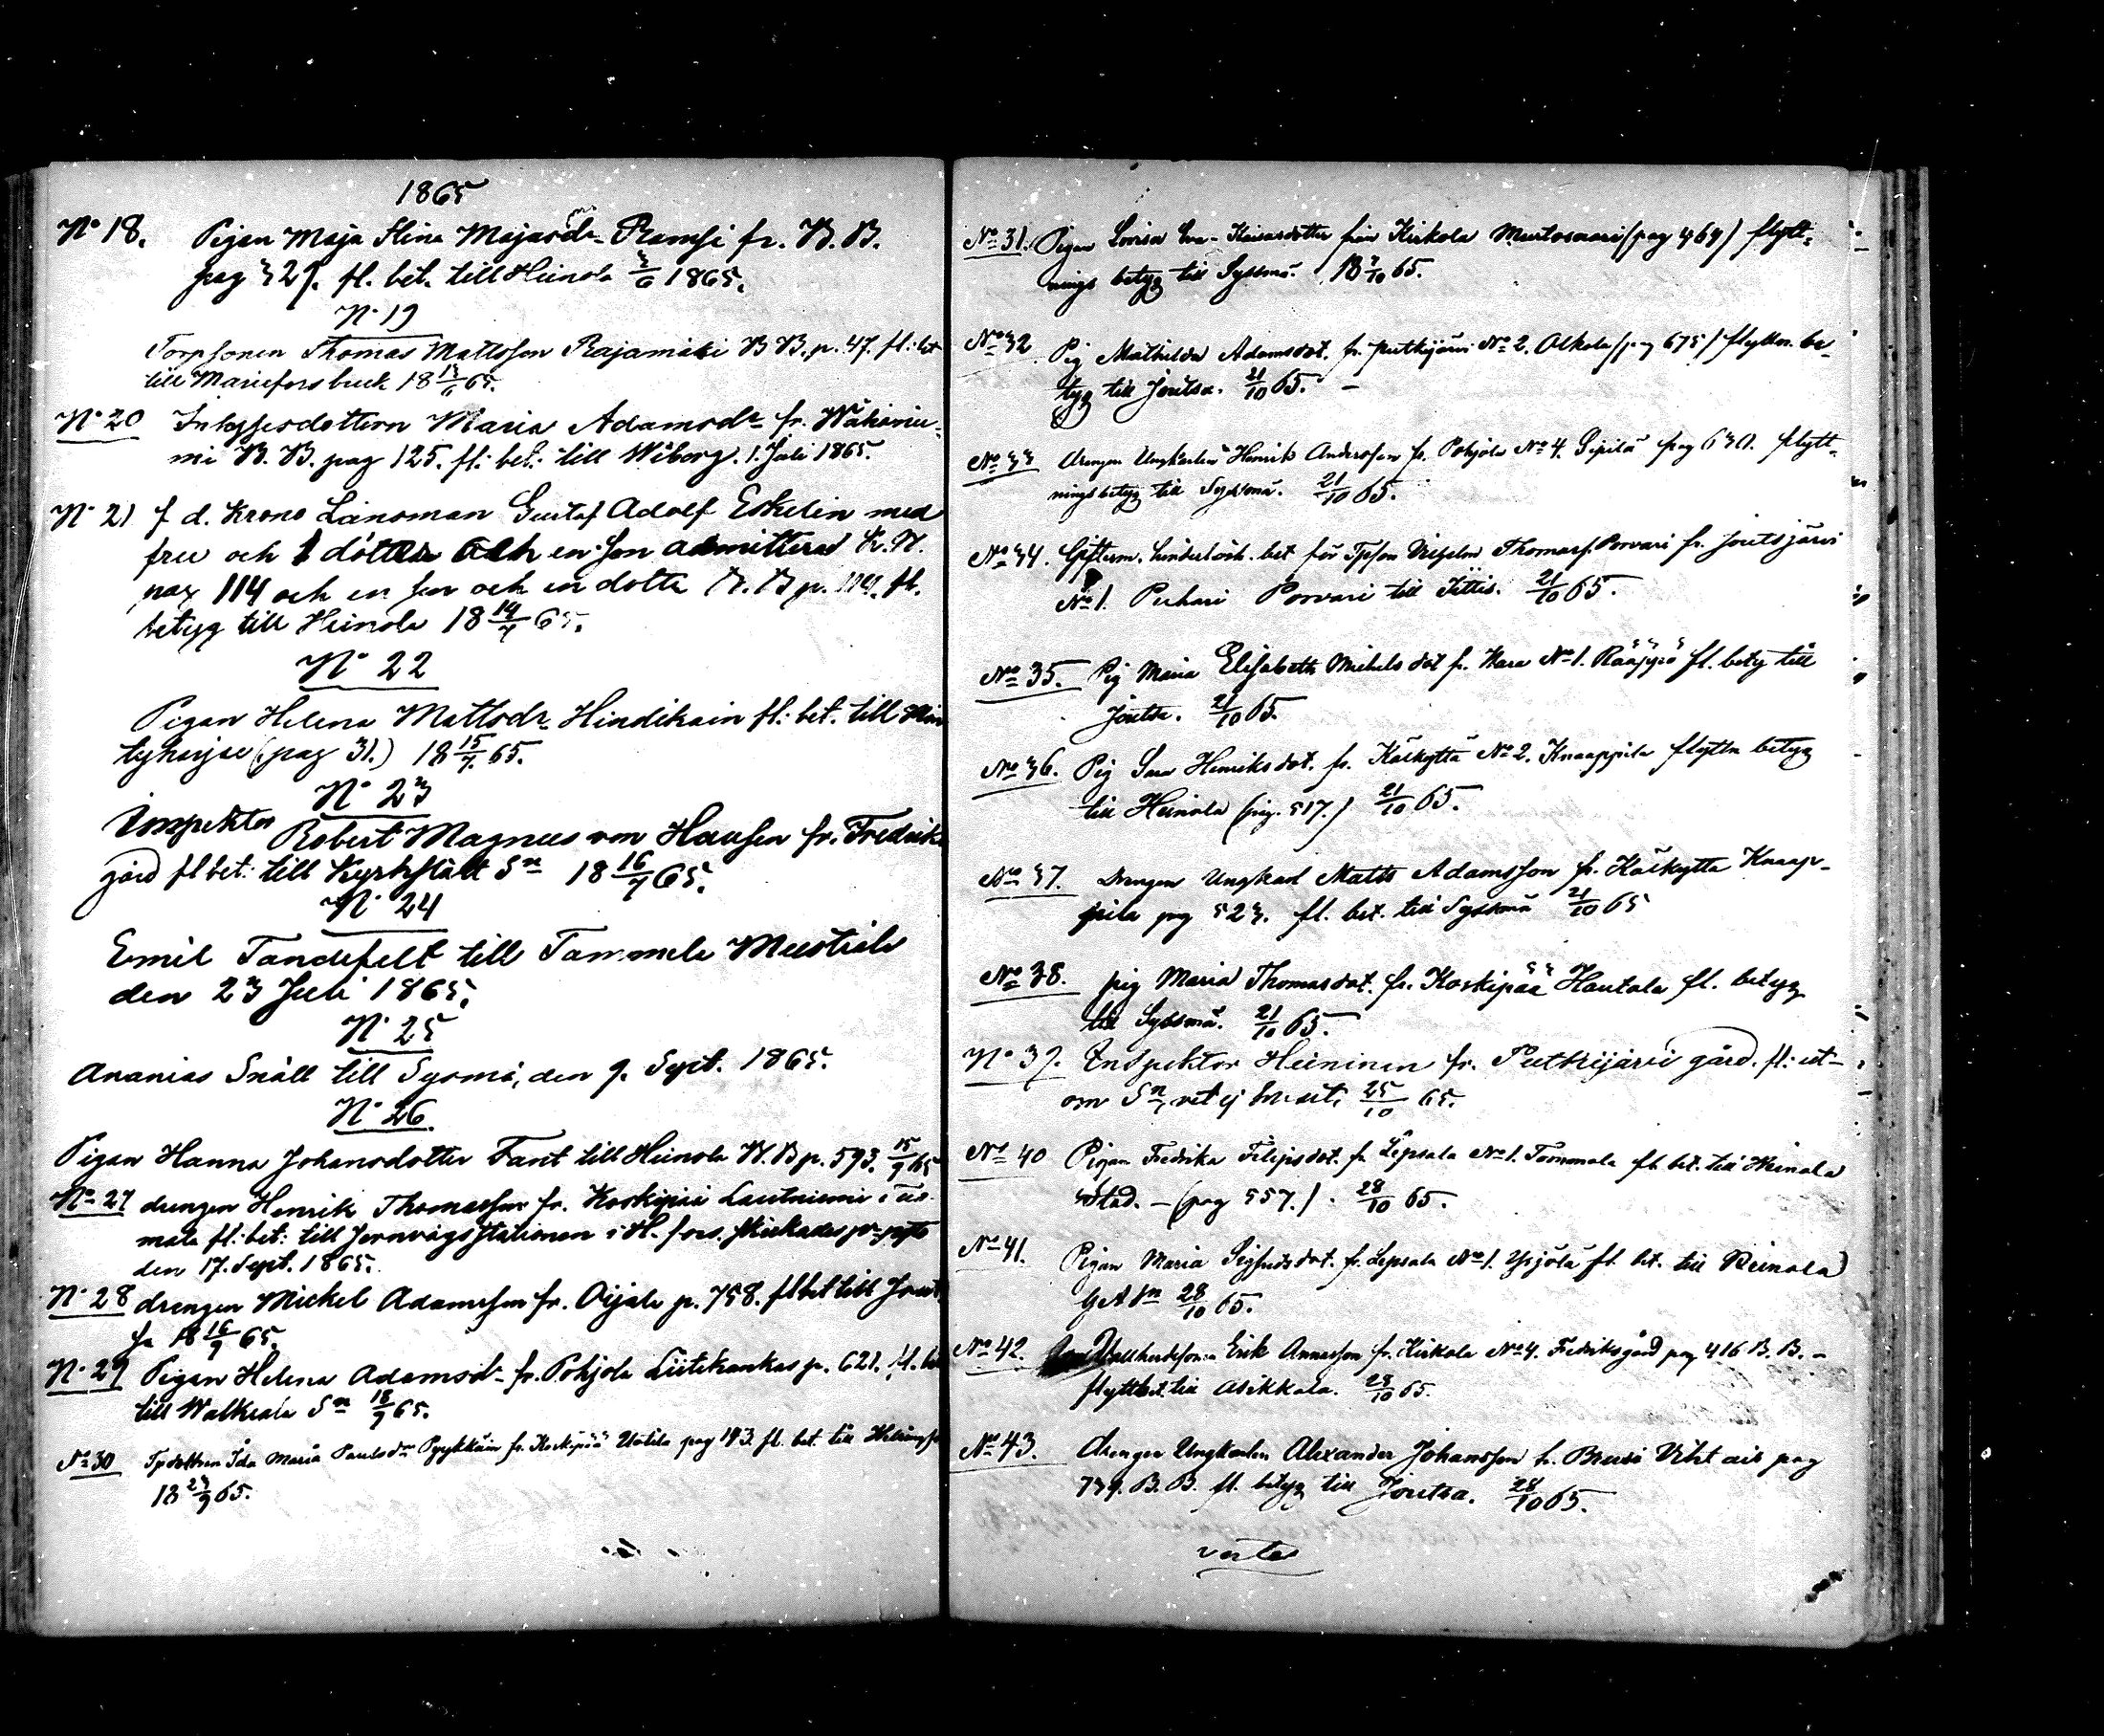 1865
No 18. Pigan Maja Stina Majasdr Ramsi fr. B. B.
pag 329. fl. bet. till Heinola 3/6 1865.
No 19
Torpsonen Thomas Mattsson Rajamäki B B. p. 47. fl: bet
till Mariefors bruk 18 13/6 65.
No 20 Inhysesdottern Maria Adamsdr fr. Wähänie-
mi B. B. pag 125. fl: bet: till Wiborg. 1. Juli 1865.
No 21 f d. Krono Länsman Gustaf Adolf Eskelin med
fru och 1 dotter och en son admitterad Kr. N.
pag 114 och en son och en dotter B. B p. fl.
betyg till Heinola 18 14/7 65.
No 22
Pigan Helena Mattsdr Hindikain fl: bet. till Män
tyharju (pag 31.) 18 15/7 65.
No 23
Inspektor Robert Magnus von Hausen fr. Fredriks
gård fl bet: till Kyrkslätt Sn 18 16/7 65.
No 24
Emil Tandefelt till Tammela Mustiala
den 23 Juli 1865.
No 25
Ananias Snäll till Sysmä, den 9. Sept. 1865.
No 26.
Pigan Hanna Johansdotter Fant till Heinola B. B p. 593. 15/9 65
No 27 drengen Henrik Thomasson fr. Koskipää Lautniemi
mala fl: bet: till Jernvägsstationen i H. fors. skickades pr post
den 17. Sept. 1865.
No 28 drengen Mickel Adamsson fr. Oijala p. 758. fl bet till Jout
sa 18 16/9 65.
No 29 Pigan Helena Adamsdr fr. Pohjola Liitekankas p. 621. fl. bet
till Walkeala Sn 18/9 65.
No 30 Tpdottren Ida Maria Paulsdr Pyykkäin fr. Koskipää Uotila pag 193. fl. bet. till Helsingfo
18 23/9 65.
No 31. Pigan Lovisa Eva Kaisasdotter från Kirkola Murtosaari (pag 464) flytt-
nings betyg till Sysmä. 18 7/10 65.
No 32 Pig Mathilda Adamsdot. fr. Putkijärvi No 2. Alkola (pag 675) flyttn. be-
tyg till Joutsa. 21/10 65. -
No 33 drengen Ungkarlen Henrik Andersson fr. Pohjola No 4. Sipilä pag 630. flytt-
ningsbetyg till Sysmä. 21/10 65.
No 34. Gifterm. hinderlösh. bet för Tpson Vilhelm Thomass. Porvari fr. Joutsjärvi
No 1. Porvari till Iittis. 21/10 65.
No 35. Pig Maria Elisabeth Mickelsdot fr. Kara No 1. Rääppö fl. betyg till
Joutsa. 21/10 65.
No 36. Pig Sara Henriksdot. fr. Käikyttä No 2. Knaappila flyttn betyg
till Heinola (pag. 517.) 21/10 65.
No 37. drengen Ungkarl Matts Adamsson fr. Käikyttä Knaap-
pila pag 523. fl. bet. till Sysmä 21/10 65
No 38. pig Maria Thomasdot. fr. Koskipää Hautala fl. betyg
till Sysmä. 21/10 65.
No 39. Inspektor Heininen fr. Putkijärvi gård. fl: ut-
om Sn, vet ej hvart, 25/10 65.
No 40 Pigan Fredrika Filipsdot. fr Lepsala No 1. Tommola fl. bet. till Heinola
stad. - (pag 557.) . 28/10 65.
No 41. Pigan Maria Sigfridsdot. fr. Lepsala No 1. Yrjölä fl. bet. till Heinola
Sn 28/10 65.
No 42. Vallherdeson Erik Annasson fr. Kirkola No 4. Fredriksgård pag 416 B. B. -
flyttbet. till Asikkala. 28/10 65.
No 43. drengen Ungkarlen Alexander Johansson fr. Brusi pag
739. B. B. fl. betyg till Joutsa. 28/10 65.
vertas